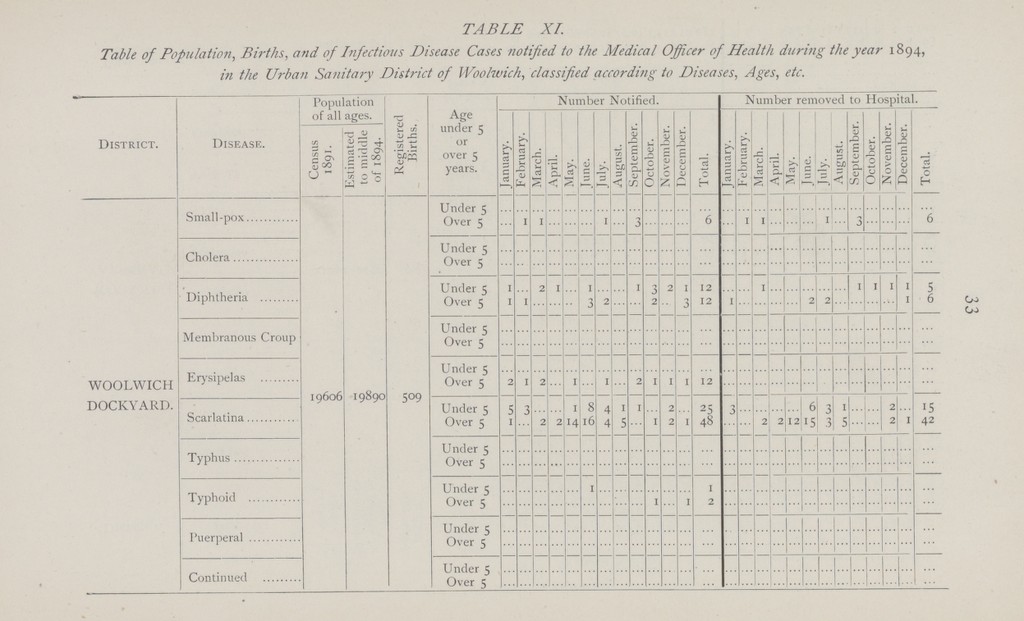 TABLE XI.
Table of Population, Births, and of Infectious Disease Cases notified to the Medical Officer of Health during the year 1894,
in the Urban Sanitary District of Woolwich, classified according to Diseases, Ages, etc.
DISTRICT. DISEASE. Population of all ages. Registered Births. Age under 5 or over 5 years. Number Notified. Number removed to Hospital.
Census 1891. Estimated to middle of 1894. January. February. March. April. May. June. July. August. September. October. November. December. Total. January. February. March. April. May. June. July. August. September. October. November. December. Total.
WOOLWICH DOCKYARD. 19606 19890 509
Small-pox............ Under 5 ... ... ... ... ... ... ... ... ... ... ... ... ... ... ... ... ... ... ... ... ... ... ... ... ... ...
Over 5 ... 1 1 ... ... ... 1 ... 3 ... ... ... 6 ... 1 1 ... ... ... 1 ... 3 ... ... ... 6
Cholera ............... Under 5 ... ... ... ... ... ... ... ... ... ... ... ... ... ... ... ... ... ... ... ... ... ... ... ... ... ...
Over 5 ... ... ... ... ... ... ... ... ... ... ... ... ... ... ... ... ... ... ... ... ... ... ... ... ... ...
Diphtheria ......... Under 5 1 ... 2 1 ... 1 ... ... 1 3 2 1 12 ... ... 1 ... ... ... ... ... 1 1 1 1 5
Over 5 1 1 ... ... ... 3 2 ... ... 2 .. 3 12 1 ... ... ... ... 2 2 ... ... ... ... 1 6
Membranous Croup Under 5 ... ... ... ... ... ... ... ... ... ... ... ... ... ... ... ... ... ... ... ... ... ... ... ... ... ...
Over 5 ... ... ... ... ... ... ... ... ... ... ... ... ... ... ... ... ... ... ... ... ... ... ... ... ... ...
Erysipelas ......... Under 5 ... ... ... ... ... ... ... ... ... ... ... ... ... ... ... ... ... ... ... ... ... ... ... ... ... ...
Over 5 2 1 2 ... 1 ... 1 ... 2 1 1 1 12 ... ... ... ... ... ... ... ... ... ... ... ... ...
Scarlatina ............ Under 5 5 3 ... ... 1 8 4 1 1 ... 2 ... 25 3 ... ... ... ... 6 3 1 ... ... 2 ... 15
Over 5 1 ... 2 2 14 16 4 5 ... 1 2 1 48 ... ... 2 2 12 15 3 5 ... ... 2 1 42
Typhus ............... Under 5 ... ... ... ... ... ... ... ... ... ... ... ... ... ... ... ... ... ... ... ... ... ... ... ... ... ...
Over 5 ... ... ... ... ... ... ... ... ... ... ... ... ... ... ... ... ... ... ... ... ... ... ... ... ... ...
Typhoid ............ Under 5 ... ... ... ... ... 1 ... ... ... ... ... ... 1 ... ... ... ... ... ... ... ... ... ... ... ... ...
Over 5 ... ... ... ... ... ... ... ... ... 1 ... 1 2 ... ... ... ... ... ... ... ... ... ... ... ... ...
Puerperal ............ Under 5 ... ... ... ... ... ... ... ... ... ... ... ... ... ... ... ... ... ... ... ... ... ... ... ... ... ...
Over 5 ... ... ... ... ... ... ... ... ... ... ... ... ... ... ... ... ... ... ... ... ... ... ... ... ... ...
Continued ......... Under 5 ... ... ... ... ... ... ... ... ... ... ... ... ... ... ... ... ... ... ... ... ... ... ... ... ... ...
Over 5 ... ... ... ... ... ... ... ... ... ... ... ... ... ... ... ... ... ... ... ... ... ... ... ... ... ...
33